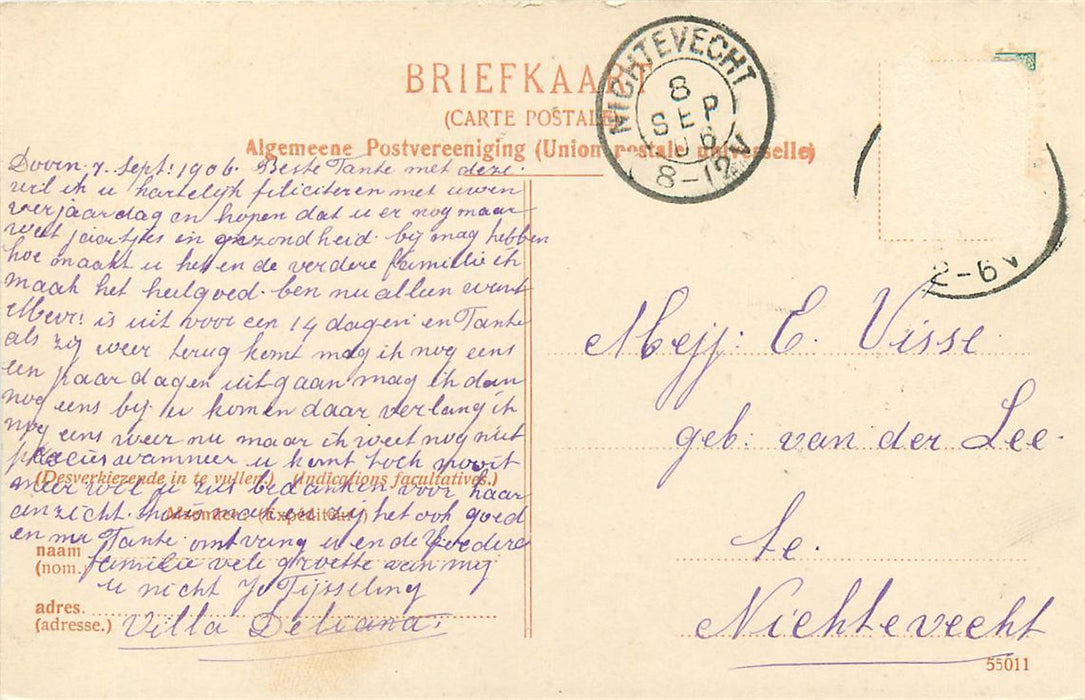 BRIEFKAART
(CARTE POSTALE)
Algemeene Postvereeniging (Union postale universelle)
NICHTEVECHT
8
SEP
06
8-12V
2-6V
Doorn, 7. Sept: 1906. Beste Tante met deze.
wil ik u hartelijk filiciteren met uwen
verjaardag en hopen dat u er nog maar
veel jaartjes in gezondheid. bij mag hebben
hoe maakt u het en de verdere familie ik
maak het heel goed. ben nu alleen want
Mevr: is uit voor een 14 dagen en Tante
als zij weer terug komt mag ik nog eens
een paar dagen uitgaan mag ik dan
nog eens bij u komen daar verlang ik
nog eens weer nu maar ik weet nog niet
precies wanneer u komt toch nooit
meer wil u zus bedanken voor haar
anzicht. hoe maakt zij het ook goed
en nu Tante ontvang u en de Verdere
familie vele groette van mij
u nicht Jo Tijsseling
Villa Deliana.
(Desverkiezende in te vullen.) (Indications facultatives.)
Afzender. (Expéditeur.)
naam
(nom.)
adres.
(adresse.)
Mejj: E. Visse
geb: van der Lee.
te.
Nichtevecht
55011